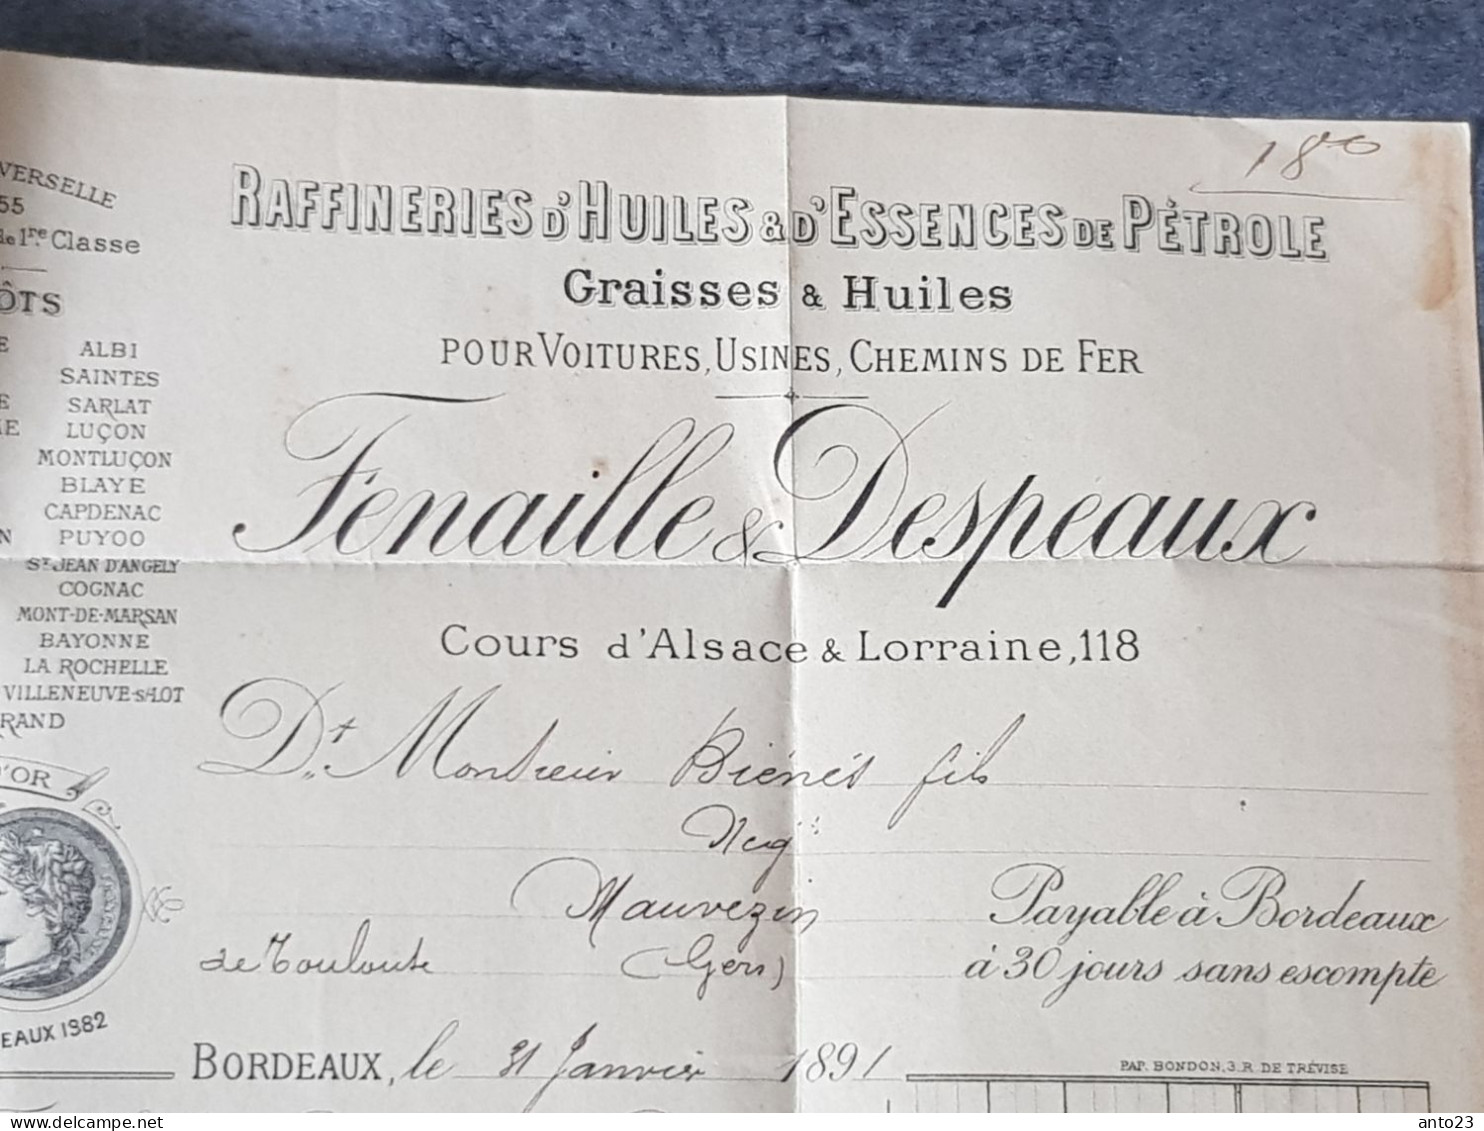 18°°
VERSELLE
55
de 1re Classe
ÔTS
E
ALBI
SAINTES
E SARLAT
ME LUÇON
MONTLUÇON
BLAYE
CAPDENAC
N PUYOO
St JEAN D'ANGELY
COGNAC
MONT-DE-MARSAN
BAYONNE
LA ROCHELLE
VILLENEUVE-S/LOT
RAND
D'OR
EAUX 1882
RAFFINERIES D'HUILES & D'ESSENCES DE PÉTROLE
Graisses & Huiles
POUR VOITURES, USINES, CHEMINS DE FER
Fenaille & Despeaux
Cours d'Alsace & Lorraine, 118
Dt. Monsieur Biénés fils
Negt
Mauvezin
de Toulouse (Gers)
Payable à Bordeaux
à 30 jours sans escompte
BORDEAUX, le 31 Janvier 1891
PAP. BONDON, 3, R. DE TRÉVISE
anto23